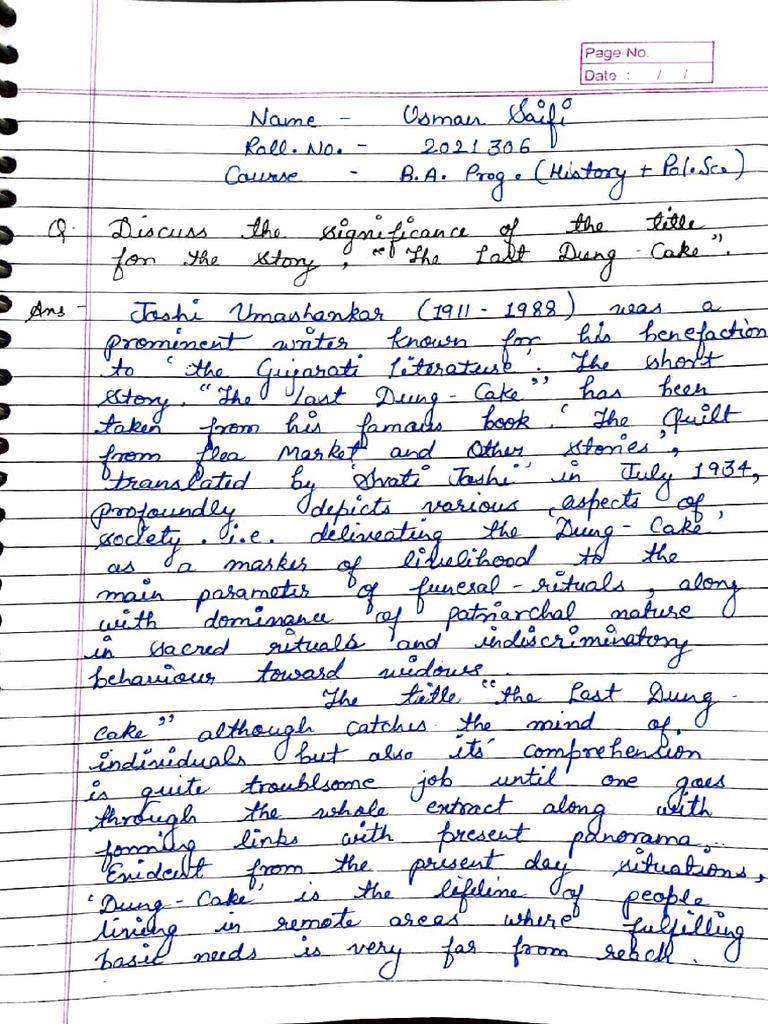 Page No.
Date : / /
Name - Usman Saifi
Roll. No. - 2021306
Course - B.A. Prog. (History + Pol.Sce)
Q. Discuss the significance of the title
for the story, "The Last Dung-Cake".
Ans - Joshi Umashankar (1911 - 1988) was a
prominent writer known for his benefaction
to 'the Gujarati literature'. The short
story. "The last Dung-Cake" has been
taken from his famous book. 'The Quilt
from flea Market and Other Stories',
translated by 'Svati Joshi' in July 1934,
profoundly depicts various aspects of
society. i.e. delineating the 'Dung-Cake'
as a marker of livelihood to the
main parameter of funeral-rituals, along
with dominance of patriarchal nature
in sacred rituals and indiscriminatory
behaviour toward widows.
The title "the Last Dung-
Cake" although catches the mind of
individuals but also its comprehension
is quite troublsome job until one goes
through the whole extract along with
forming links with present panorama.
Evident from the present day situations,
'Dung-Cake' is the lifeline of people
living in remote areas where fulfilling
basic needs is very far from reach.